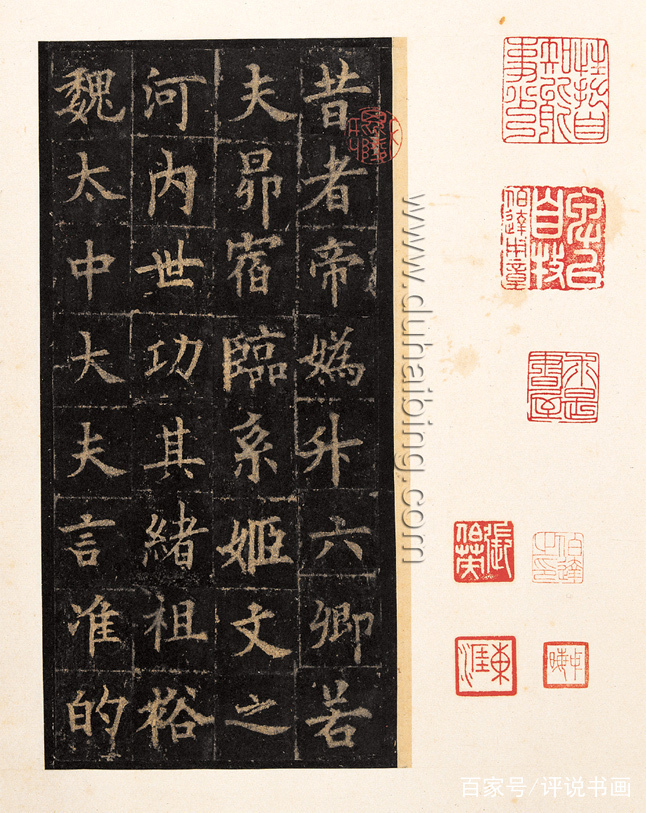 昔者帝媯升六卿若
夫昴宿臨系姬文之
河内世功其緒祖裕
魏太中大夫言准的
張伯英
www.duhaibing.com
百家号/评说书画